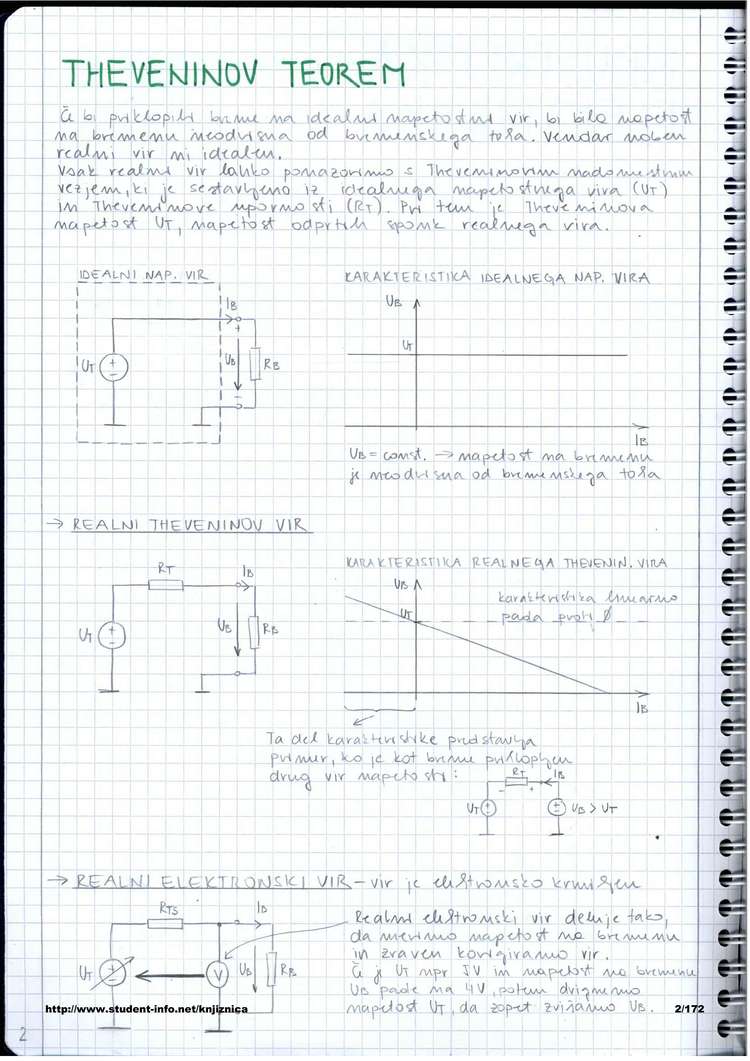 THEVENINOV TEOREM
Č bi priklopili breme na idealni napetostni vir, bi bila napetost
na bremenu neodvisna od bremenskega toka. Vendar noben
realni vir ni idealen.
Vsak realni vir lahko ponazorimo s Theveninovim nadomestnim
vezjem, ki je sestavljeno iz idealnega napetostnega vira (UT)
in Theveninove upornosti (RT). Pri tem je Theveninova
napetost UT, napetost odprtih sponk realnega vira.
IDEALNI NAP. VIR
IB
UT
+
−
+
UB
RB
−
KARAKTERISTIKA IDEALNEGA NAP. VIRA
UB
UT
IB
UB = const. → napetost na bremenu
je neodvisna od bremenskega toka
→ REALNI THEVENINOV VIR
RT
IB
UT
+
−
UB
RB
KARAKTERISTIKA REALNEGA THEVENIN. VIRA
UB
karakteristika linearno
UT
pada proti Ø
IB
Ta del karakteristike predstavlja
primer, ko je kot breme priklopljen
drug vir napetosti:
RT
IB
−
+
UT
UB > UT
→ REALNI ELEKTRONSKI VIR – vir je elektronsko krmiljen
RTS
IB
UT
V
UB
RB
Realni elektronski vir deluje tako,
da merimo napetost na bremenu
in zraven korigiramo vir.
Č je UT npr 5V in napetost na bremenu
UB pade na 4V, potem dvignemo
napetost UT, da zopet zvišamo UB.
http://www.student-info.net/knjiznica
2/172
2